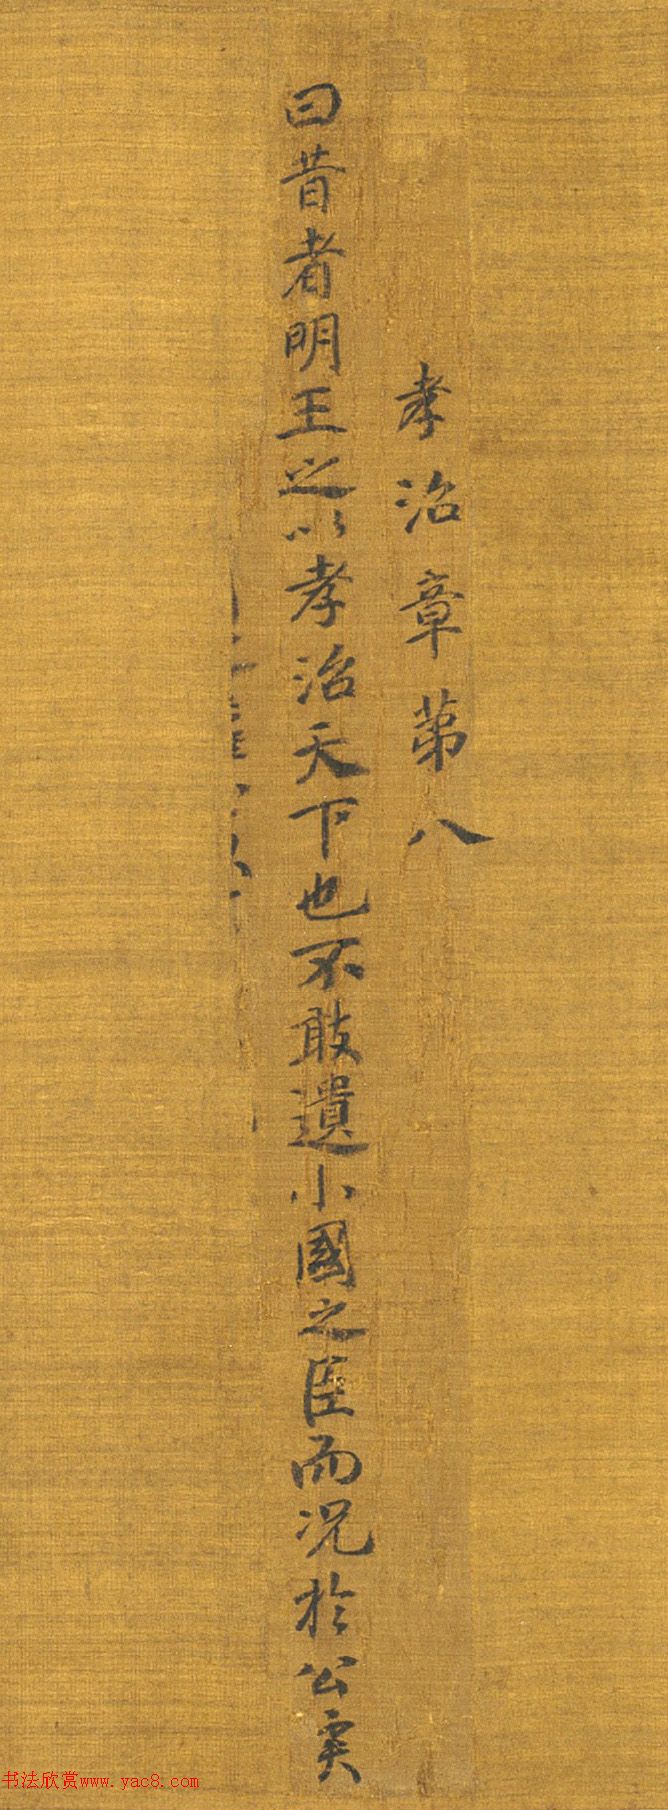 孝治章第八
曰昔者明王之以孝治天下也不敢遺小國之臣而况於公矦
书法欣赏www.yac8.com